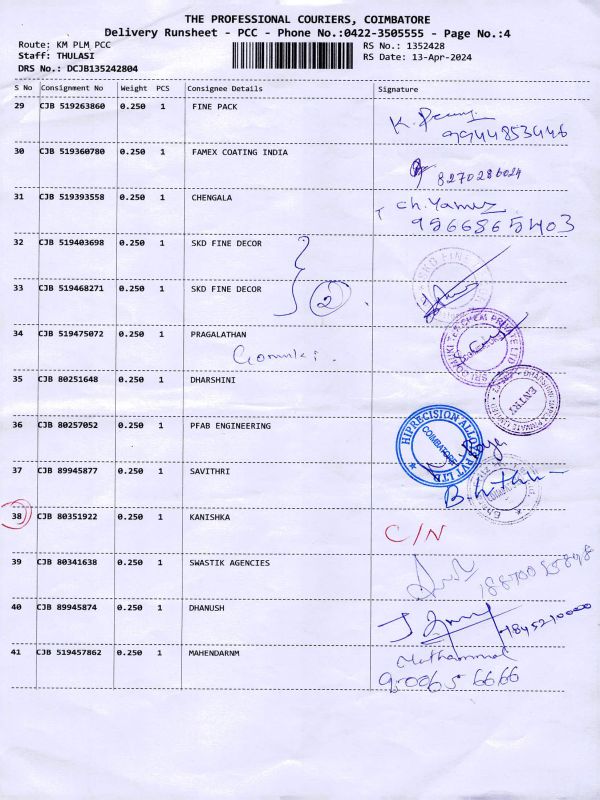 THE PROFESSIONAL COURIERS, COIMBATORE
Delivery Runsheet - PCC - Phone No.:0422-3505555 - Page No.:4
Route: KM PLM PCC RS No.: 1352428
Staff: THULASI RS Date: 13-Apr-2024
DRS No.: DCJB135242804
S No Consignment No Weight PCS Consignee Details Signature
29 CJB 519263860 0.250 1 FINE PACK
9944853446
30 CJB 519360780 0.250 1 FAMEX COATING INDIA
8270286024
31 CJB 519393558 0.250 1 CHENGALA
32 CJB 519403698 0.250 1 SKD FINE DECOR
33 CJB 519468271 0.250 1 SKD FINE DECOR 2
34 CJB 519475072 0.250 1 PRAGALATHAN
35 CJB 80251648 0.250 1 DHARSHINI
ENTRY
36 CJB 80257052 0.250 1 PFAB ENGINEERING
HIPRECISION ALLOY PVT LTD
COIMBATORE
37 CJB 89945877 0.250 1 SAVITHRI
38 CJB 80351922 0.250 1 KANISHKA C/N
39 CJB 80341638 0.250 1 SWASTIK AGENCIES
40 CJB 89945874 0.250 1 DHANUSH
41 CJB 519457862 0.250 1 MAHENDARNM